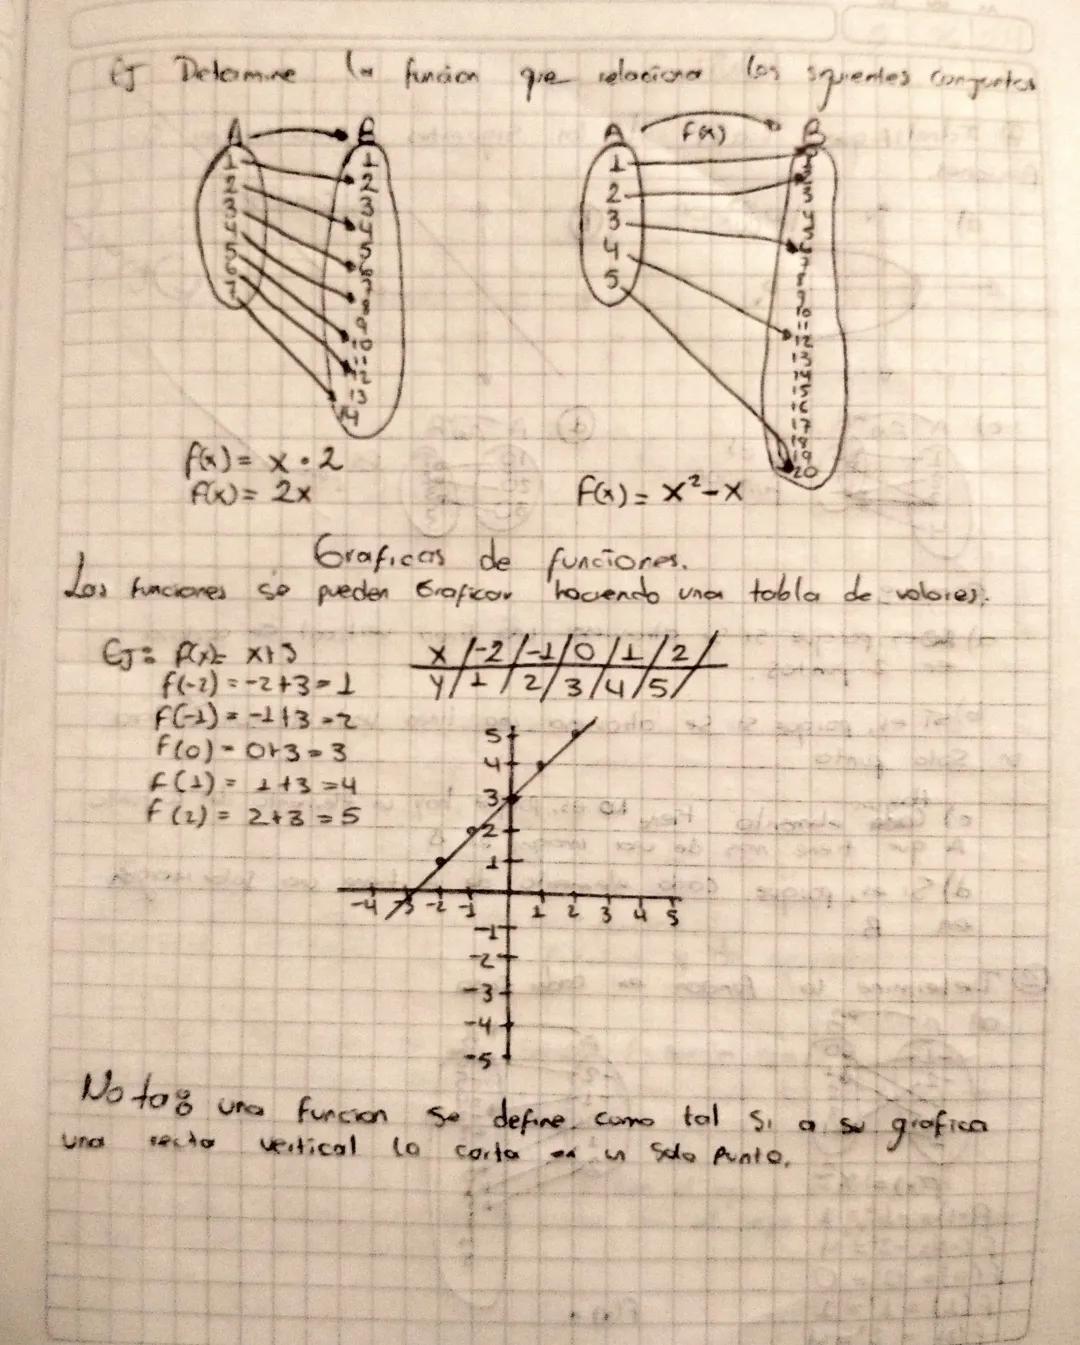 Ej Determine la funcion que relaciona los siguientes conjuntos
A B
1 1
2 2
3 3
4 4
5 5
6 6
7 7
8
9
10
11
12
13
14
f(x) = x • 2
f(x) = 2x
A f(x) B
1
2
3 3
4 4
5 5
6
7
8
9
10
11
12
13
14
15
16
17
18
19
20
f(x) = x² - x
Graficas de funciones.
Las funciones se pueden Graficar haciendo una tabla de valores.
Ej: f(x)= x+3
f(-2) = -2+3 = 1
f(-1) = -1+3 = 2
f(0) = 0+3 = 3
f(1) = 1+3 = 4
f(2) = 2+3 = 5
X / -2 / -1 / 0 / 1 / 2 /
Y / 1 / 2 / 3 / 4 / 5 /
5
4
3
2
1
-4 -3 -2 -1 1 2 3 4 5
-1
-2
-3
-4
-5
Nota: una funcion se define como tal si a su grafica
una recta vertical lo corta en un solo punto.